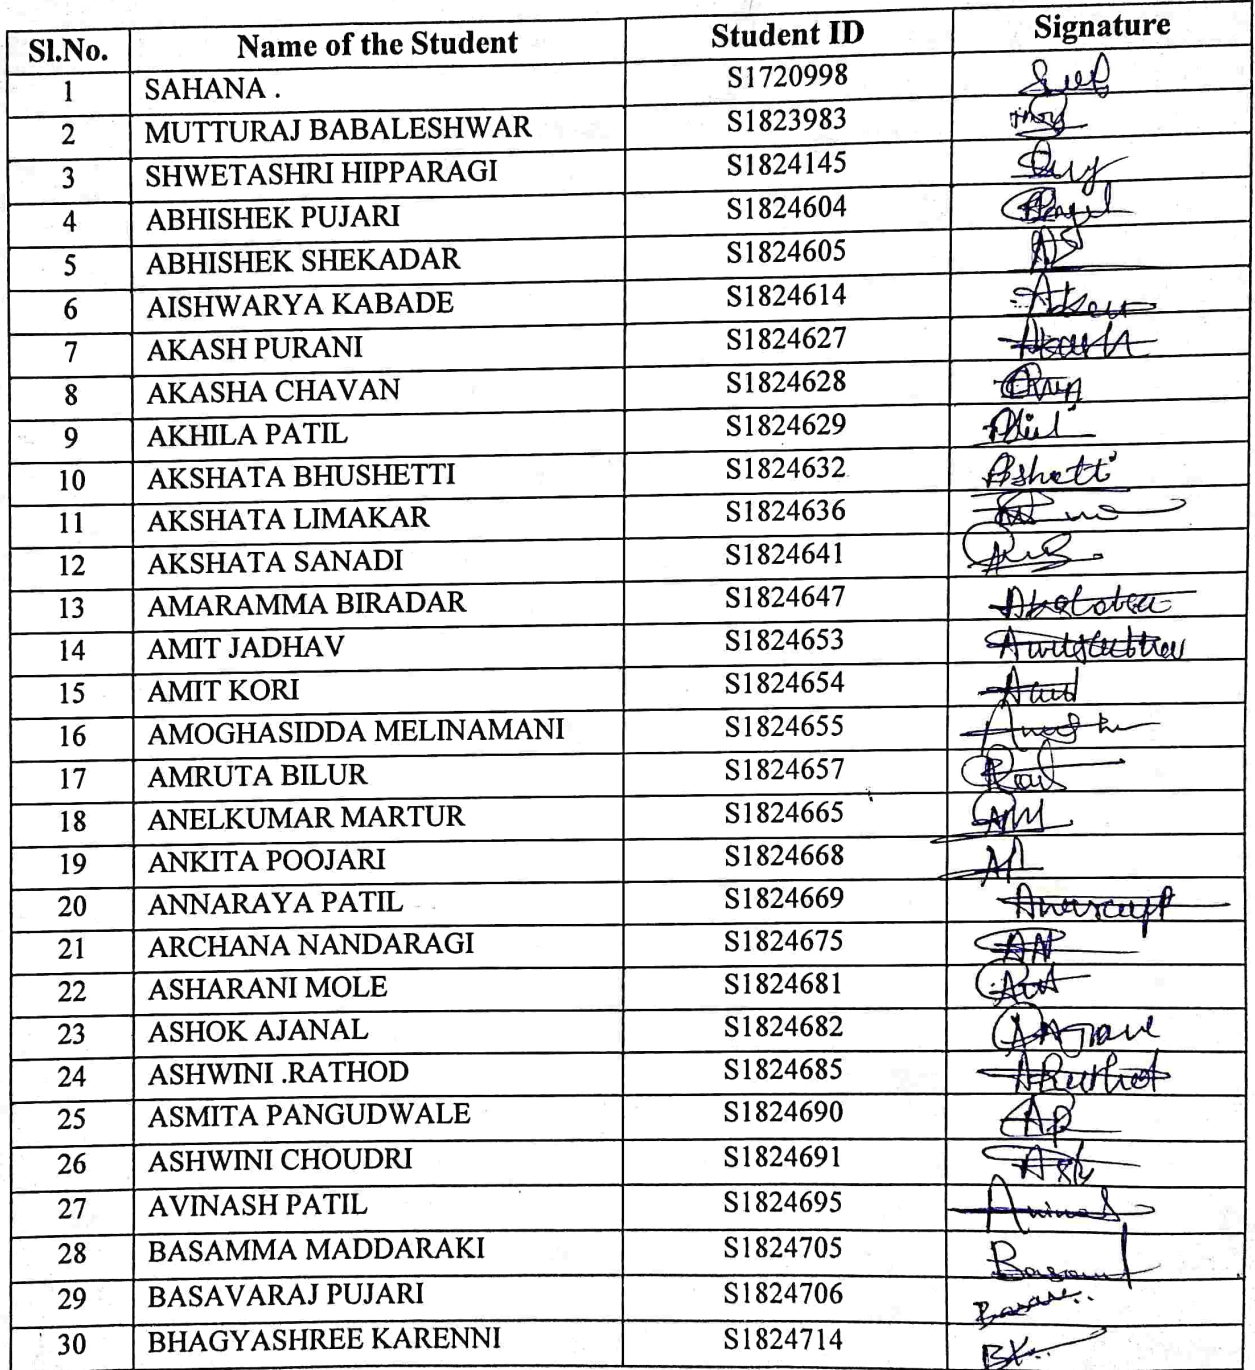 Sl.No. Name of the Student Student ID Signature
1 SAHANA . S1720998
2 MUTTURAJ BABALESHWAR S1823983
3 SHWETASHRI HIPPARAGI S1824145
4 ABHISHEK PUJARI S1824604
5 ABHISHEK SHEKADAR S1824605
6 AISHWARYA KABADE S1824614
7 AKASH PURANI S1824627
8 AKASHA CHAVAN S1824628
9 AKHILA PATIL S1824629
10 AKSHATA BHUSHETTI S1824632 Ashetti
11 AKSHATA LIMAKAR S1824636
12 AKSHATA SANADI S1824641
13 AMARAMMA BIRADAR S1824647
14 AMIT JADHAV S1824653
15 AMIT KORI S1824654
16 AMOGHASIDDA MELINAMANI S1824655
17 AMRUTA BILUR S1824657
18 ANELKUMAR MARTUR S1824665
19 ANKITA POOJARI S1824668
20 ANNARAYA PATIL S1824669
21 ARCHANA NANDARAGI S1824675
22 ASHARANI MOLE S1824681
23 ASHOK AJANAL S1824682
24 ASHWINI .RATHOD S1824685
25 ASMITA PANGUDWALE S1824690
26 ASHWINI CHOUDRI S1824691
27 AVINASH PATIL S1824695
28 BASAMMA MADDARAKI S1824705
29 BASAVARAJ PUJARI S1824706
30 BHAGYASHREE KARENNI S1824714